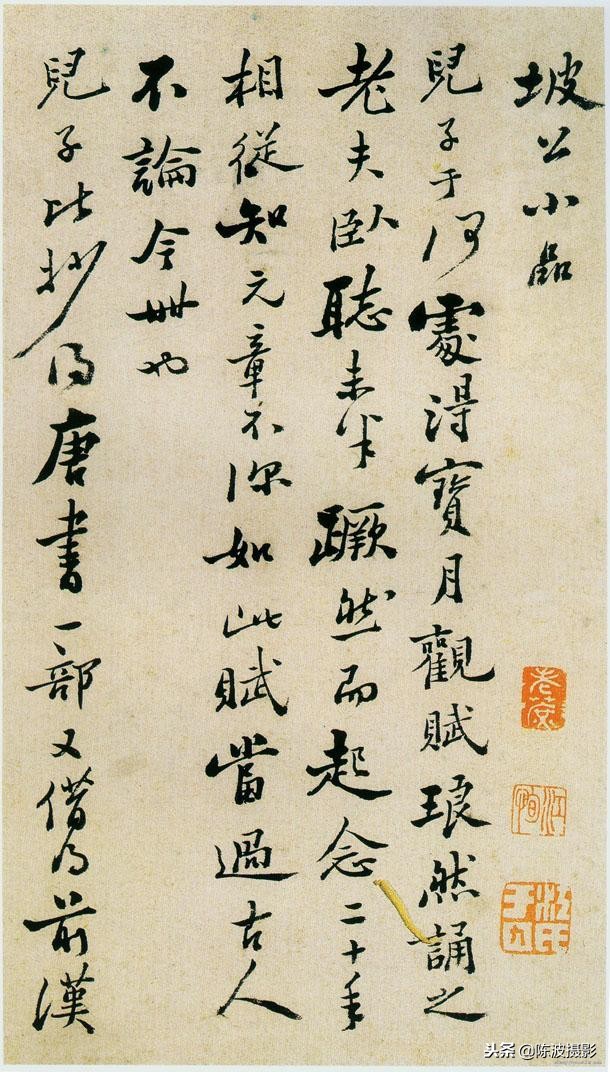 坡公小品
兒子于何處得寶月觀賦琅然誦之
老夫臥聽未半蹶然而起念二十年
相從知元章不深如此賦當過古人
不論今世也
兒子比抄得唐書一部又借得前漢
头条 @陈波摄影